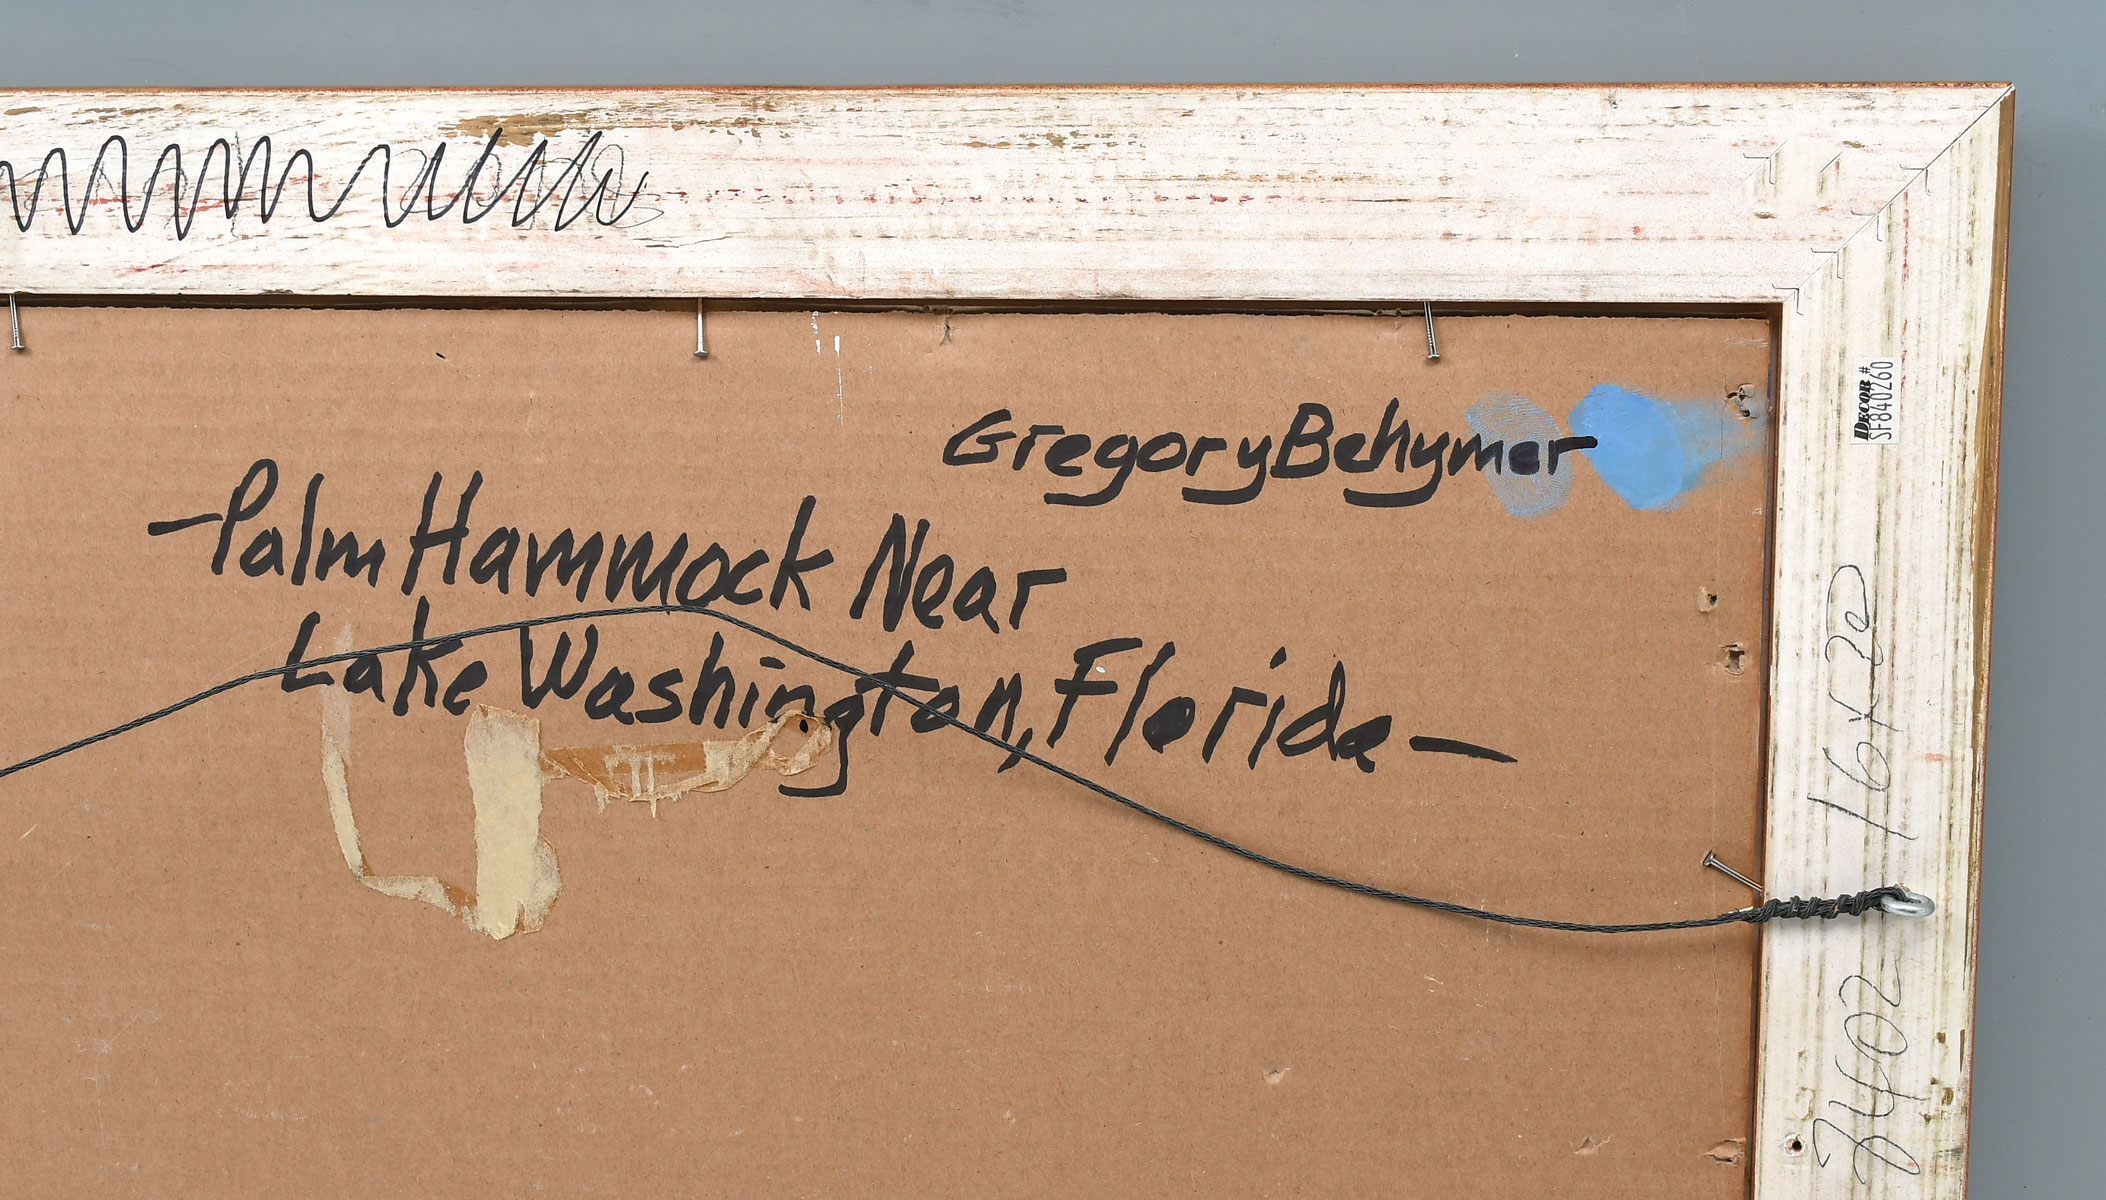 Gregory Behymer
-Palm Hammock Near
Lake Washington, Florida-
DECOR #
SF840260
16x20
3402